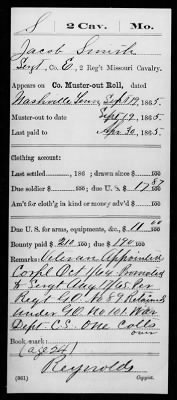 S 2 Cav. Mo.
Jacob Smith
Sergt, Co. E, 2 Reg't Missouri Cavalry.
Appears on Co. Muster-out Roll, dated
Nashville Tenn Sept 19, 1865.
Muster-out to date Sept 19, 1865.
Last paid to Apr 30, 1865.
Clothing account:
Last settled, 186 ; drawn since $
Due soldier $ ; due U. S. $
Am't for cloth'g in kind or money adv'd $
Due U. S. for arms, equipments, &c., $ 11 00
Bounty paid $ 210 ; due $ 190
Remarks: Veteran Appointed
Corpl Oct 1/64 Promoted
to Sergt Aug 17/65 Per
Regt G.O. No 89 Retains
under G.O. No 101 War
Dept C.S. One Colts
over
Book mark:
(age 24)
Reynolds
(861) Copyist.